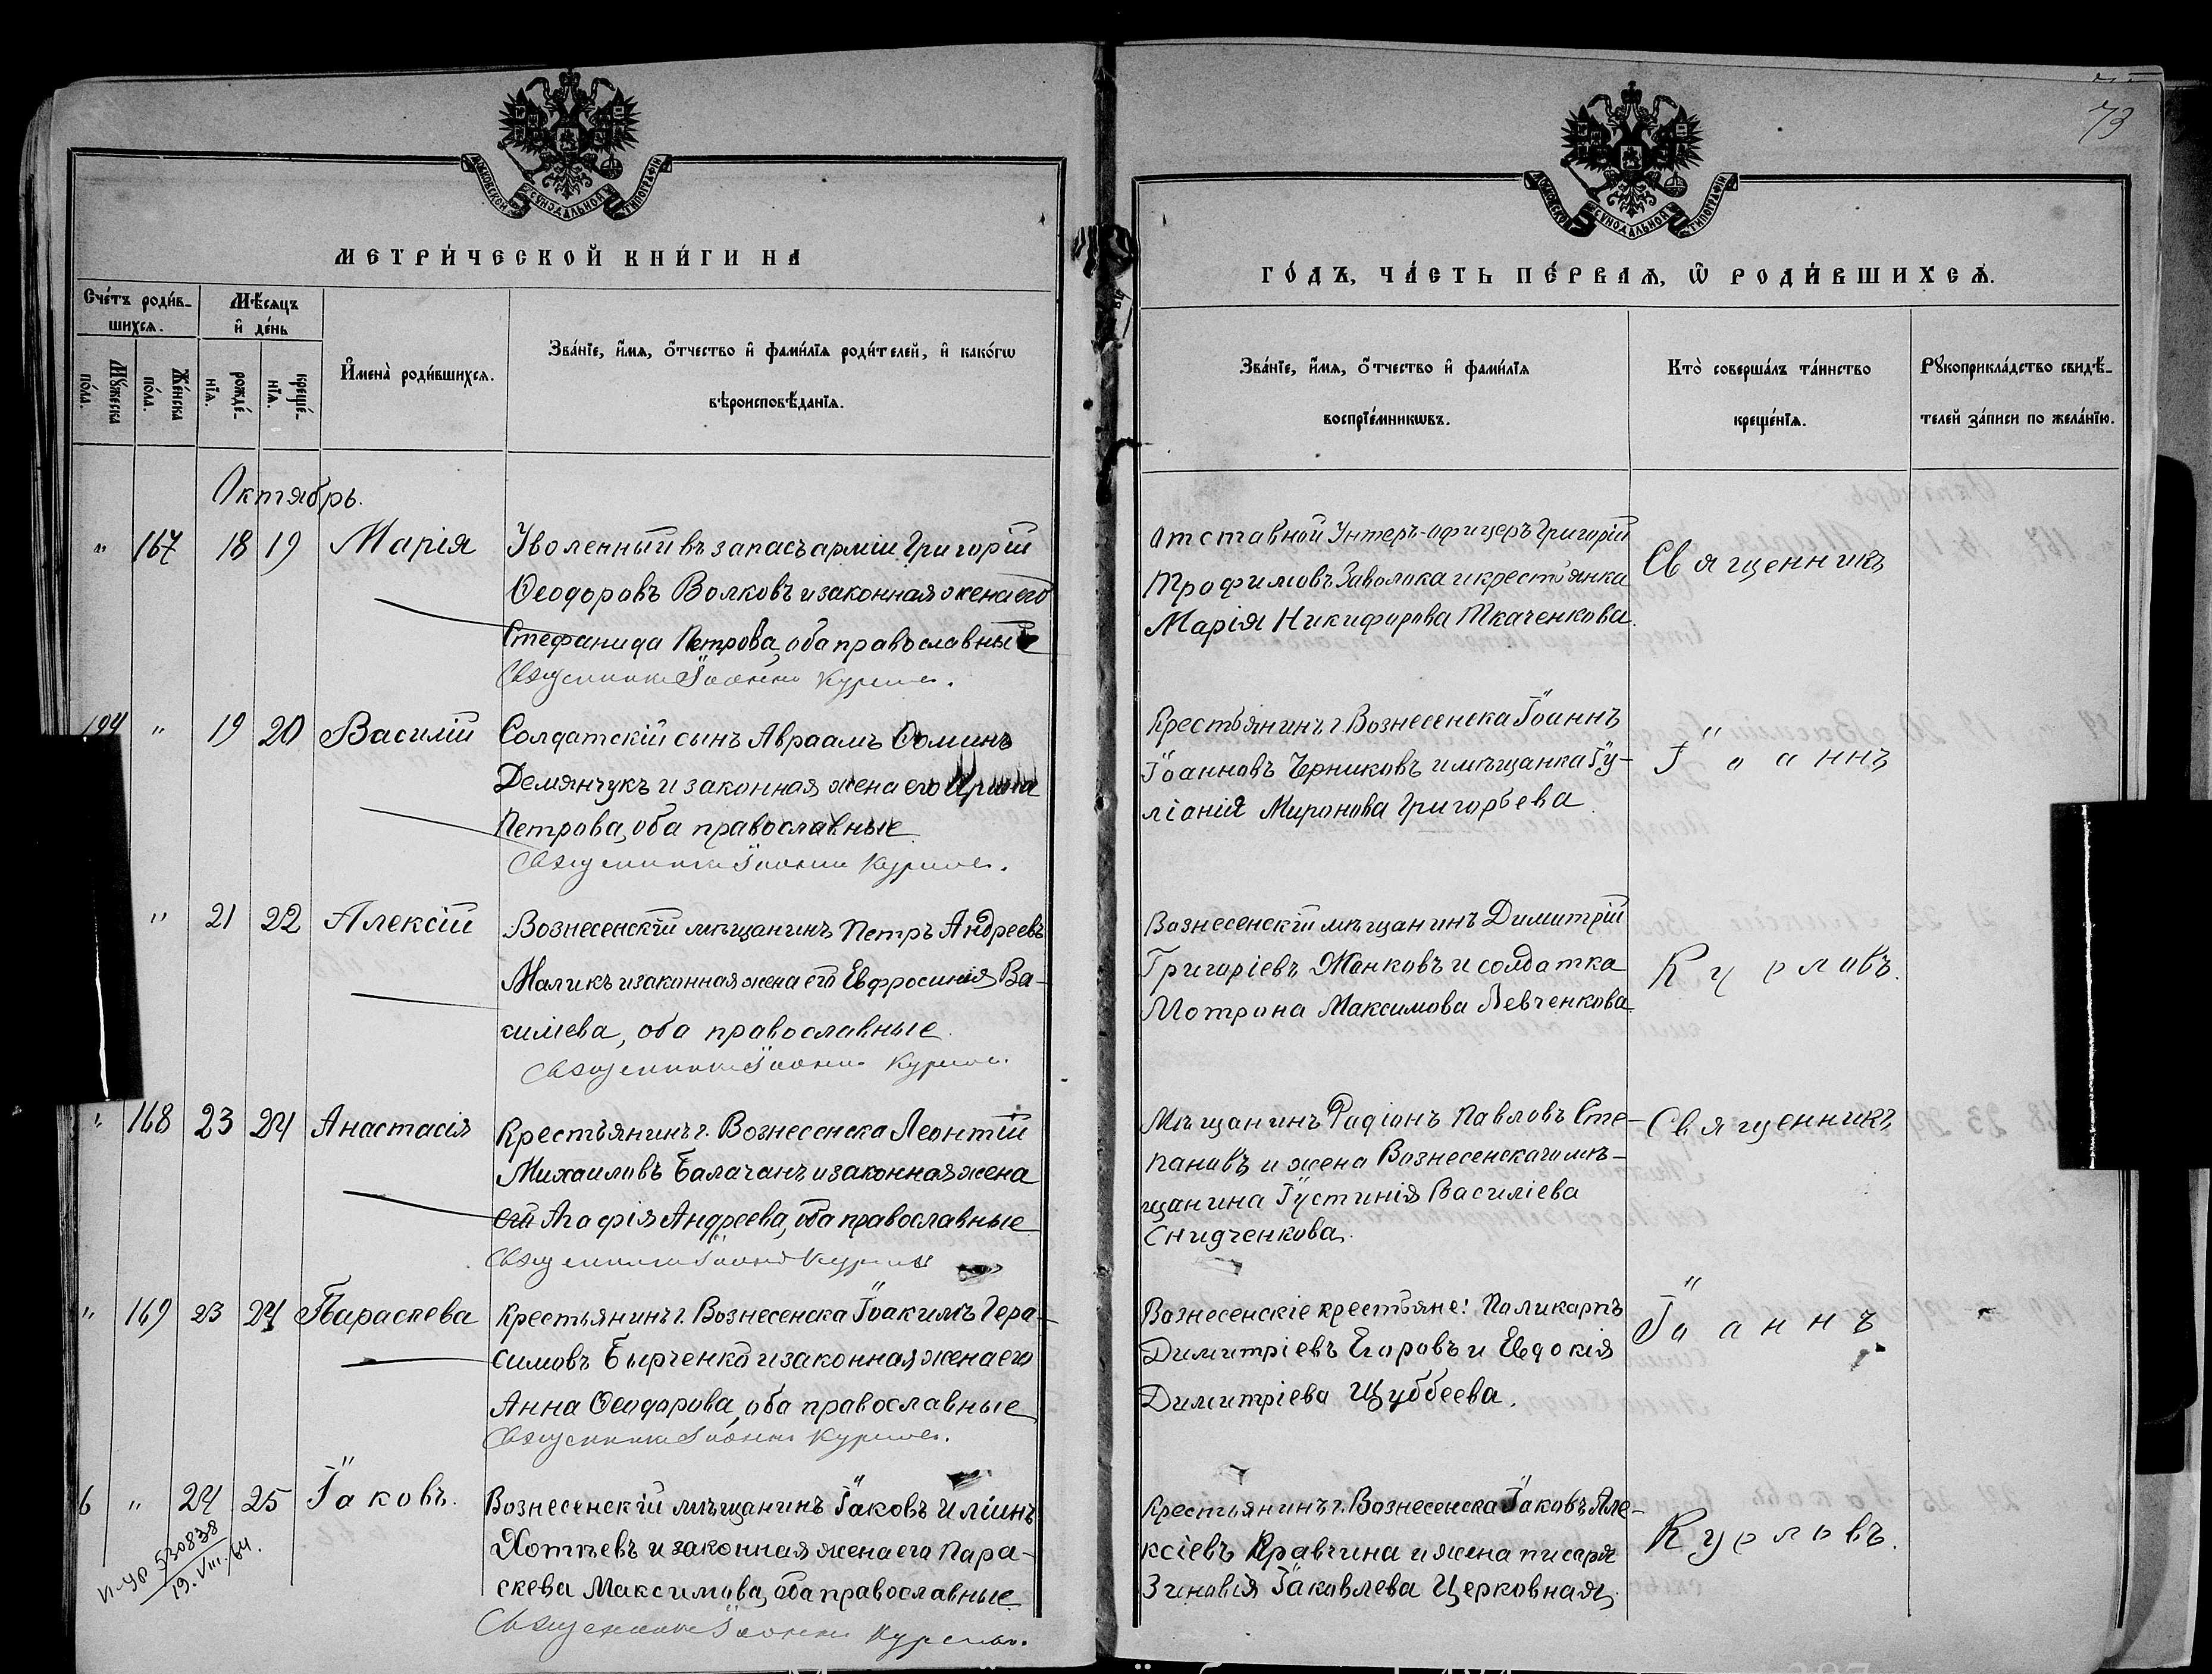 73
МОСКОВСКОЙ СѴНОДАЛЬНОЙ ТИПОГРАФІИ
МОСКОВСКОЙ СѴНОДАЛЬНОЙ ТИПОГРАФІИ
МЕТРИ́ЧЕСКОЙ КНИ́ГИ НА
ГО́ДЪ, ЧА́СТЬ ПЕ́РВАѦ, Ѽ РОДИ́ВШИХСѦ.
Сче́тъ роди́в-
шихсѧ.
Мѣ́сяцъ
и҆ де́нь
Мꙋ́жеска
по́ла.
Же́нска
по́ла.
рожде́-
нїѧ.
креще́-
нїѧ.
И҆мена̀ роди́вшихсѧ.
Зва́нїе, и҆́мѧ, ѻ҆́тчество и҆ фами́лїѧ роди́телей, и҆ како́гѡ
вѣроисповѣ́данїѧ.
Зва́нїе, и҆́мѧ, ѻ҆́тчество и҆ фами́лїѧ
воспрїе́мникѡвъ.
Кто̀ соверша́лъ та́инство
креще́нїѧ.
Рꙋкоприкла́дство свидѣ́-
телей за́писи по жела́нїю.
Октябрь.
" 167 18 19 Марія
Уволенный въ запасъ арміи Григорій
Ѳеодоровъ Волковъ и законная жена его
Стефанида Петрова, оба православные
Священникъ Іоаннъ Курловъ.
Отставной Унтеръ-офицеръ Григорій
Трофимовъ Заволока и крестьянка
Марія Никифорова Ткаченкова.
Священникъ
194 " 19 20 Василій
Солдатскій сынъ Авраамъ Ѳоминъ
Демянчукъ и законная жена его Ирина
Петрова, оба православные
Священникъ Іоаннъ Курловъ.
Крестьянинъ г. Вознесенска Іоаннъ
Іоанновъ Черниковъ и мѣщанка Іу-
ліанія Миронова Григорьева.
Іоаннъ
" 21 22 Алексій
Вознесенскій мѣщанинъ Петръ Андреевъ
Маликъ и законная жена его Евфросинія Ва-
силіева, оба православные.
Священникъ Іоаннъ Курловъ.
Вознесенскій мѣщанинъ Димитрій
Григоріевъ Жанковъ и солдатка
Мотрона Максимова Левченкова
Курловъ.
" 168 23 24 Анастасія
Крестьянинъ г. Вознесенска Леонтій
Михаиловъ Балачанъ и законная жена
его Агафія Андреева, оба православные
Священникъ Іоаннъ Курловъ
Мѣщанинъ Радіонъ Павловъ Сте-
пановъ и жена Вознесенскаго мѣ-
щанина Іустинія Василіева
Снидченкова.
Священникъ
" 169 23 24 Параскева
Крестьянинъ г. Вознесенска Іоакимъ Гера-
симовъ Бырченко и законная жена его
Анна Ѳеодорова, оба православные
Священникъ Іоаннъ Курловъ.
Вознесенскіе крестьяне: Поликарпъ
Димитріевъ Егоровъ и Евдокія
Димитріева Щуббеева.
Іоаннъ
6 " 24 25 Іаковъ.
Вознесенскій мѣщанинъ Іаковъ Иліинъ
Хотѣевъ и законная жена его Пара-
скева Максимова, оба православные
Священникъ Іоаннъ Курловъ.
Крестьянинъ г. Вознесенска Іаковъ Але-
ксіевъ Кравчина и жена писаря
Зиновія Іаковлева Церковная.
Курловъ.
530838
19.VIII.64.